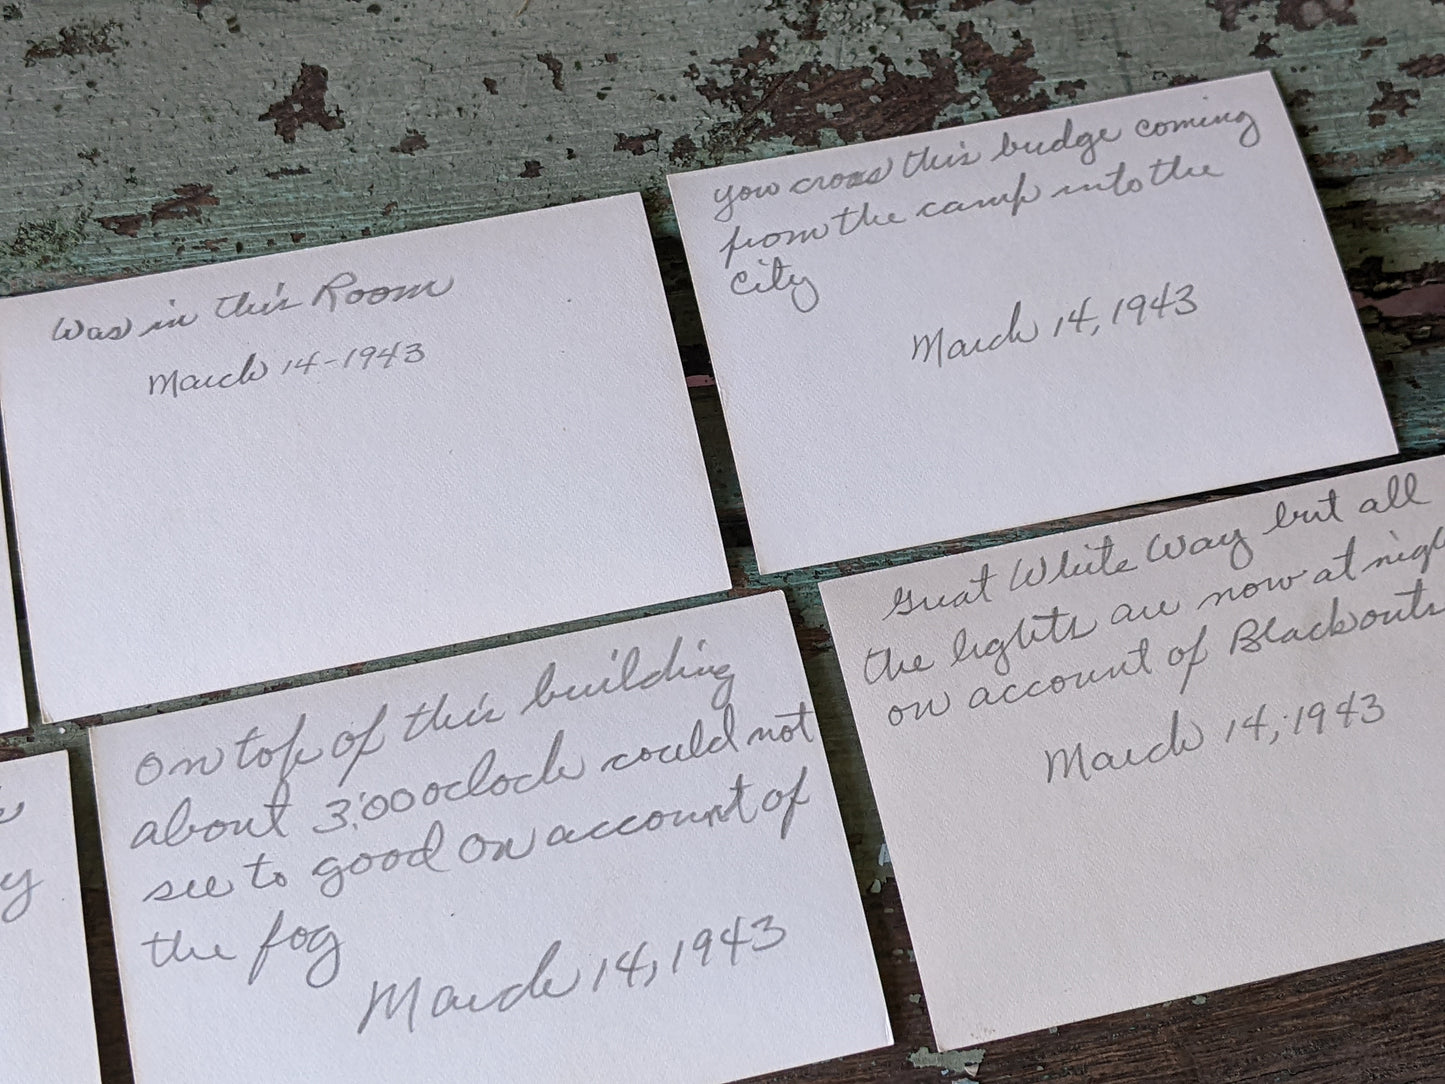 Was in this Room
March 14-1943
you cross this bridge coming
from the camp into the
City
March 14, 1943
On top of this building
about 3:00 oclock could not
see to good on account of
the fog
March 14, 1943
Great White Way but all
the lights are now at
on account of Blackouts
March 14, 1943